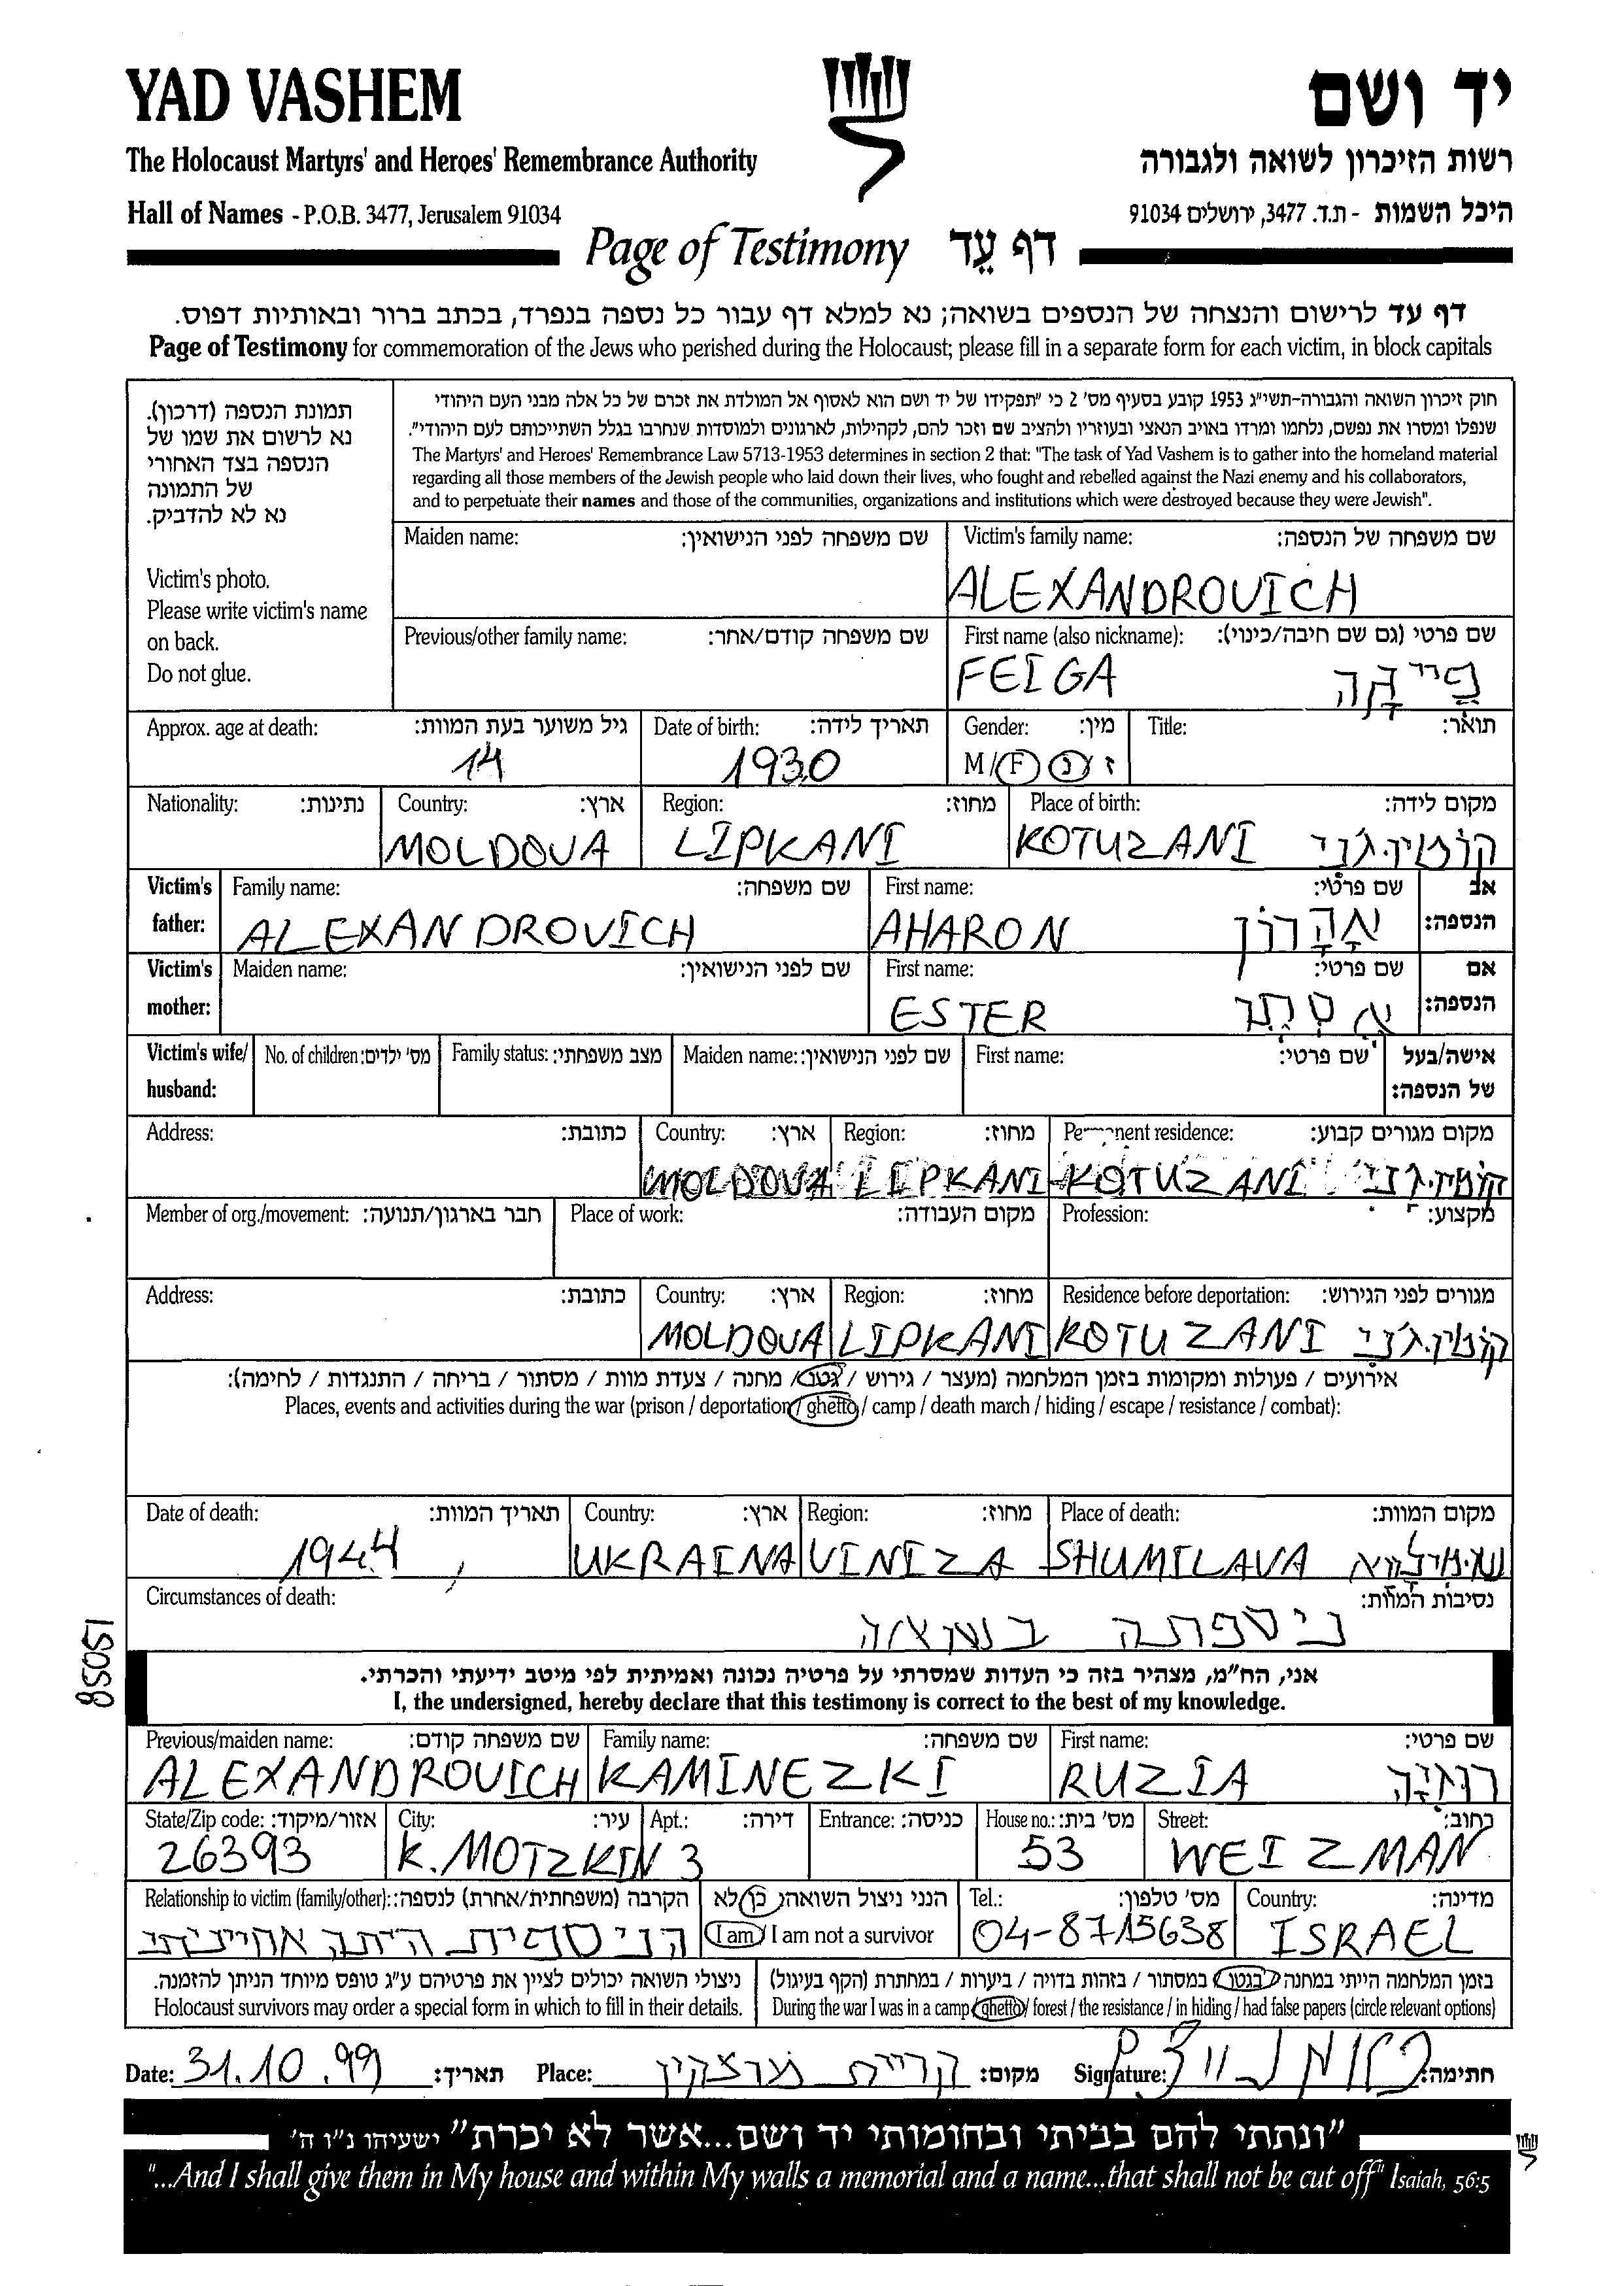 YAD VASHEM
יד ושם
The Holocaust Martyrs' and Heroes' Remembrance Authority
רשות הזיכרון לשואה ולגבורה
Hall of Names - P.O.B. 3477, Jerusalem 91034
היכל השמות - ת.ד. 3477, ירושלים 91034
Page of Testimony דף עֵד
דף עד לרישום והנצחה של הנספים בשואה; נא למלא דף עבור כל נספה בנפרד, בכתב ברור ובאותיות דפוס.
Page of Testimony for commemoration of the Jews who perished during the Holocaust; please fill in a separate form for each victim, in block capitals
תמונת הנספה (דרכון).
נא לרשום את שמו של
הנספה בצד האחורי
של התמונה
נא לא להדביק.
Victim's photo.
Please write victim's name
on back.
Do not glue.
חוק זיכרון השואה והגבורה-תשי"ג 1953 קובע בסעיף מס' 2 כי "תפקידו של יד ושם הוא לאסוף אל המולדת את זכרם של כל אלה מבני העם היהודי
שנפלו ומסרו את נפשם, נלחמו ומרדו באויב הנאצי ובעוזריו ולהציב שם וזכר להם, לקהילות, לארגונים ולמוסדות שנחרבו בגלל השתייכותם לעם היהודי".
The Martyrs' and Heroes' Remembrance Law 5713-1953 determines in section 2 that: "The task of Yad Vashem is to gather into the homeland material
regarding all those members of the Jewish people who laid down their lives, who fought and rebelled against the Nazi enemy and his collaborators,
and to perpetuate their names and those of the communities, organizations and institutions which were destroyed because they were Jewish".
Maiden name: שם משפחה לפני הנישואין: Victim's family name: שם משפחה של הנספה:
ALEXANDROVICH
Previous/other family name: שם משפחה קודם/אחר: First name (also nickname): שם פרטי (גם שם חיבה/כינוי):
FEIGA פייגה
Approx. age at death: גיל משוער בעת המוות: Date of birth: תאריך לידה: Gender: מין: Title: תואר:
14 1930 M/F נ/ז
Nationality: נתינות: Country: ארץ: Region: מחוז: Place of birth: מקום לידה:
MOLDOVA LIPKANI KOTUZANI קוטיוז'ני
Victim's father: Family name: שם משפחה: First name: שם פרטי: אב הנספה:
ALEXANDROVICH AHARON אהרון
Victim's mother: Maiden name: שם לפני הנישואין: First name: שם פרטי: אם הנספה:
ESTER אסתר
Victim's wife/ husband: No. of children: מס' ילדים: Family status: מצב משפחתי: Maiden name: שם לפני הנישואין: First name: שם פרטי: אישה/בעל של הנספה:
Address: כתובת: Country: ארץ: Region: מחוז: Permanent residence: מקום מגורים קבוע:
MOLDOVA LIPKANI KOTUZANI קוטיוז'ני
Member of org./movement: חבר בארגון/תנועה: Place of work: מקום העבודה: Profession: מקצוע:
Address: כתובת: Country: ארץ: Region: מחוז: Residence before deportation: מגורים לפני הגירוש:
MOLDOVA LIPKANI KOTUZANI קוטיוז'ני
אירועים / פעולות ומקומות בזמן המלחמה (מעצר / גירוש / גטו / מחנה / צעדת מוות / מסתור / בריחה / התנגדות / לחימה):
Places, events and activities during the war (prison / deportation / ghetto / camp / death march / hiding / escape / resistance / combat):
Date of death: תאריך המוות: Country: ארץ: Region: מחוז: Place of death: מקום המוות:
1944 UKRAINA VINIZA SHUMILAVA שומילווא
Circumstances of death: נסיבות המוות:
ניספתה בשואה
85051
אני, הח"מ, מצהיר בזה כי העדות שמסרתי על פרטיה נכונה ואמיתית לפי מיטב ידיעתי והכרתי.
I, the undersigned, hereby declare that this testimony is correct to the best of my knowledge.
Previous/maiden name: שם משפחה קודם: Family name: שם משפחה: First name: שם פרטי:
ALEXANDROVICH KAMINEZKI RUZIA רוזיה
State/Zip code: אזור/מיקוד: City: עיר: Apt.: דירה: Entrance: כניסה: House no.: מס' בית: Street: רחוב:
26393 K. MOTZKIN 3 53 WEIZMAN
Relationship to victim (family/other): הקרבה (משפחתית/אחרת) לנספה: הנני ניצול השואה: כן/לא Tel.: מס' טלפון: Country: מדינה:
הניספית היתה אחייניתי I am / I am not a survivor 04-8715638 ISRAEL
ניצולי השואה יכולים לציין את פרטיהם ע"ג טופס מיוחד הניתן להזמנה. בזמן המלחמה הייתי במחנה / בגטו / במסתור / בזהות בדויה / ביערות / במחתרת (הקף בעיגול)
Holocaust survivors may order a special form in which to fill in their details. During the war I was in a camp / ghetto / forest / the resistance / in hiding / had false papers (circle relevant options)
Date: 31.10.99 תאריך: Place: קריית מוצקין מקום: Signature: חתימה:
"ונתתי להם בביתי ובחומותי יד ושם...אשר לא יכרת" ישעיהו נ"ו ה'
"...And I shall give them in My house and within My walls a memorial and a name...that shall not be cut off" Isaiah, 56:5